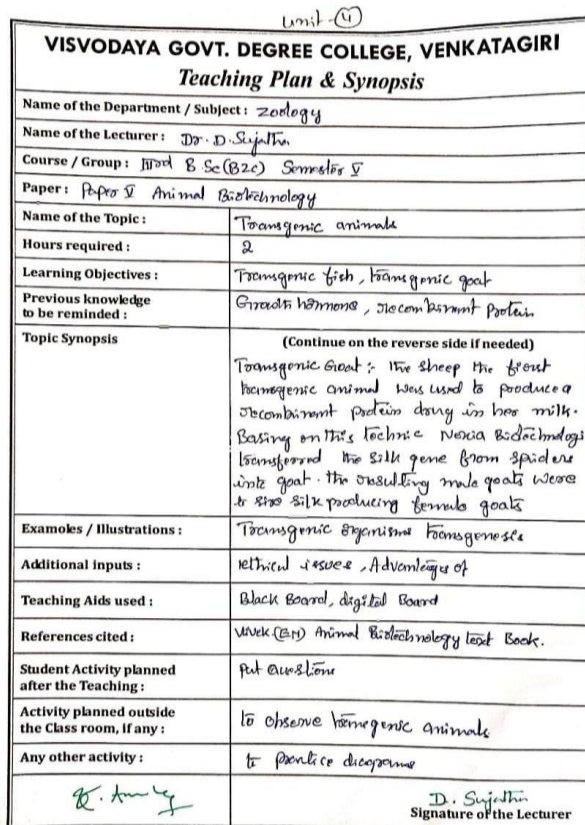 Unit-4
VISVODAYA GOVT. DEGREE COLLEGE, VENKATAGIRI
Teaching Plan & Synopsis
Name of the Department / Subject : Zoology
Name of the Lecturer : Dr. D. Sujatha
Course / Group : IIIrd B Sc (BZC) Semester V
Paper : Paper V Animal Biotechnology
Name of the Topic : Transgenic animals
Hours required : 2
Learning Objectives : Transgenic fish, transgenic goat
Previous knowledge
to be reminded : Growth hormone, recombinant Protein
Topic Synopsis
(Continue on the reverse side if needed)
Transgenic Goat :- The sheep the first
transgenic animal was used to produce a
recombinant protein drug in her milk.
Basing on this technic Nexia Biotechnologi
transferred the silk gene from spiders
into goat. the resulting male goats were
to sire silk producing female goats
Examoles / Illustrations : Transgenic organisms transgenesis
Additional inputs : ethical issues, Advantages of
Teaching Aids used : Black Board, digital Board
References cited : Animal Biotechnology text Book.
Student Activity planned
after the Teaching : Put Questions
Activity planned outside
the Class room, if any : to observe transgenic animals
Any other activity : to practice diagrams
D. Sujatha
Signature of the Lecturer